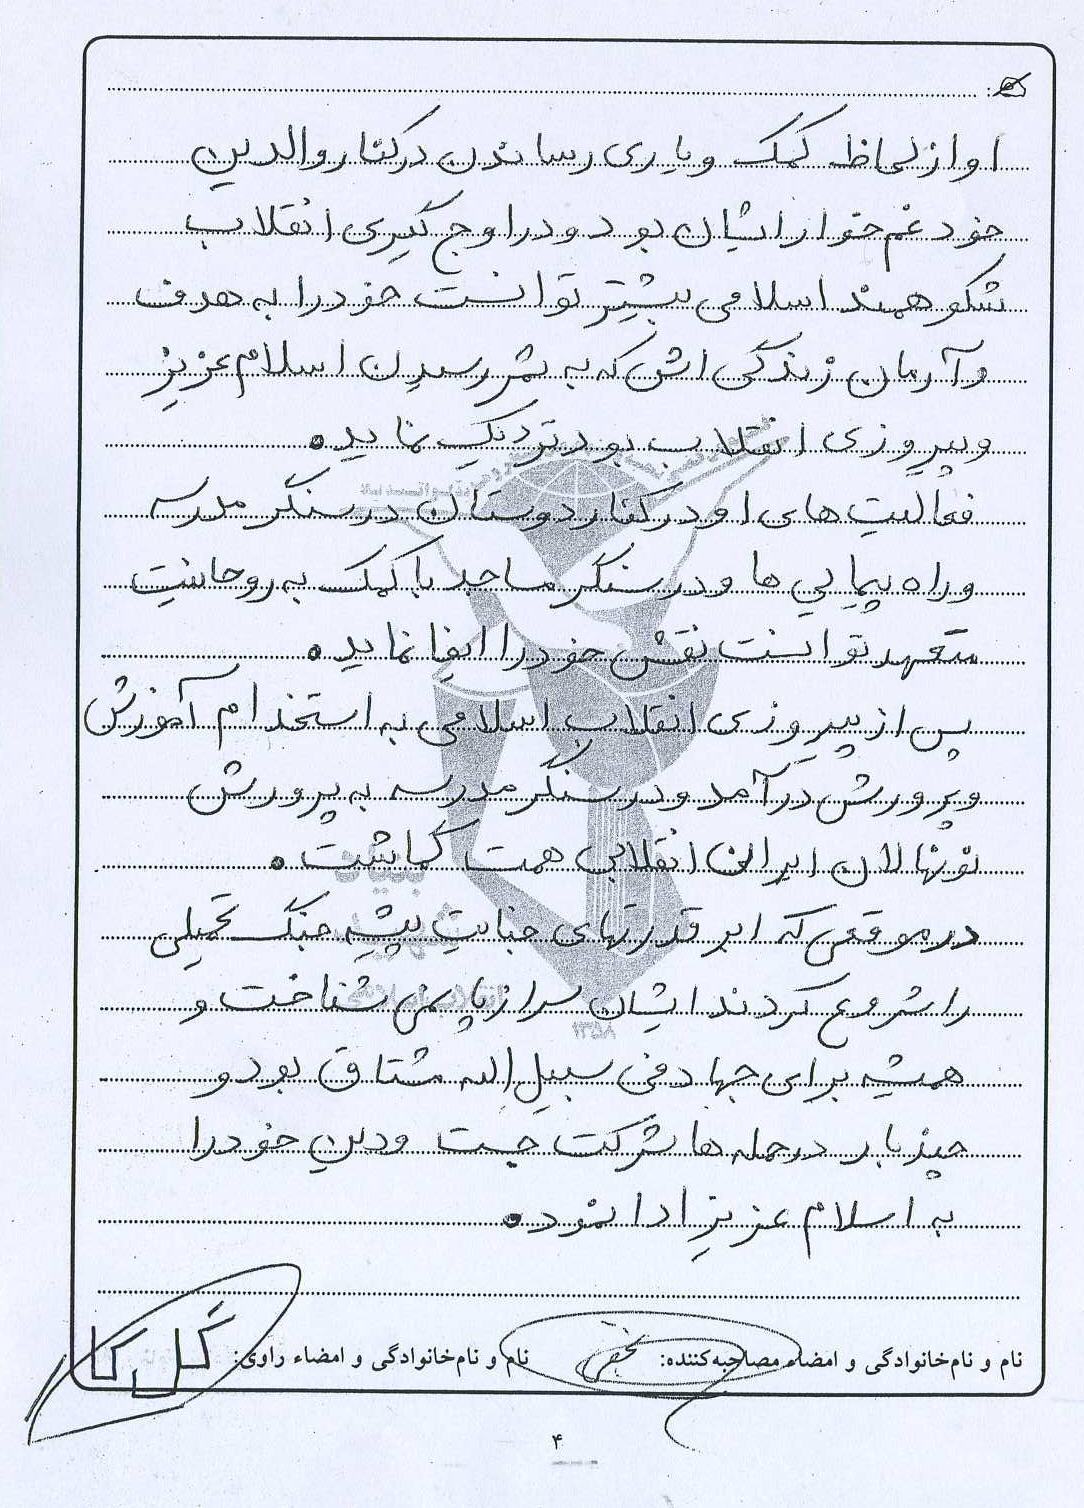 او از لحاظ کمک و یاری رساندن در کنار والدین
خود غم خوار ایشان بود و در اوج گیری انقلاب
شکوهمند اسلامی بیشتر توانست خود را به هدف
و آرمان زندگی اش که به ثمر رسیدن اسلام عزیز
و پیروزی انقلاب بود نزدیک نماید.
فعالیت های او در کنار دوستان در سنگر مدرسه
و راه پیمایی ها و در سنگر مساجد با کمک به روحانیت
متعهد توانست نقش خود را ایفا نماید.
پس از پیروزی انقلاب اسلامی به استخدام آموزش
و پرورش در آمد و در سنگر مدرسه به پرورش
نونهالان ایران انقلابی همت گماشت.
در موقعی که ابر قدرتهای جنایت پیشه جنگ تحمیلی
را شروع کردند ایشان سر از پا نمی شناخت و
همیشه برای جهاد فی سبیل الله مشتاق بود و
چند بار در حمله ها شرکت جست و دین خود را
به اسلام عزیز ادا نمود.
نام و نام‌خانوادگی و امضاء مصاحبه‌کننده: نام و نام‌خانوادگی و امضاء راوی:
۴